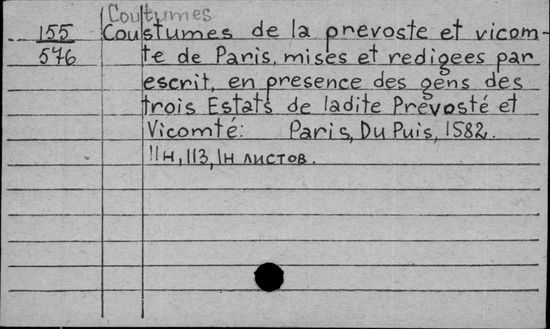 Coutumes
155
576
Coustumes de la prevoste et vicom-
te de Paris, mises et redigees par
escrit, en presence des gens des
trois Estats de ladite Prevosté et
Vicomté: Paris, Du Puis, 1582.
11н, 113, 1н листов.